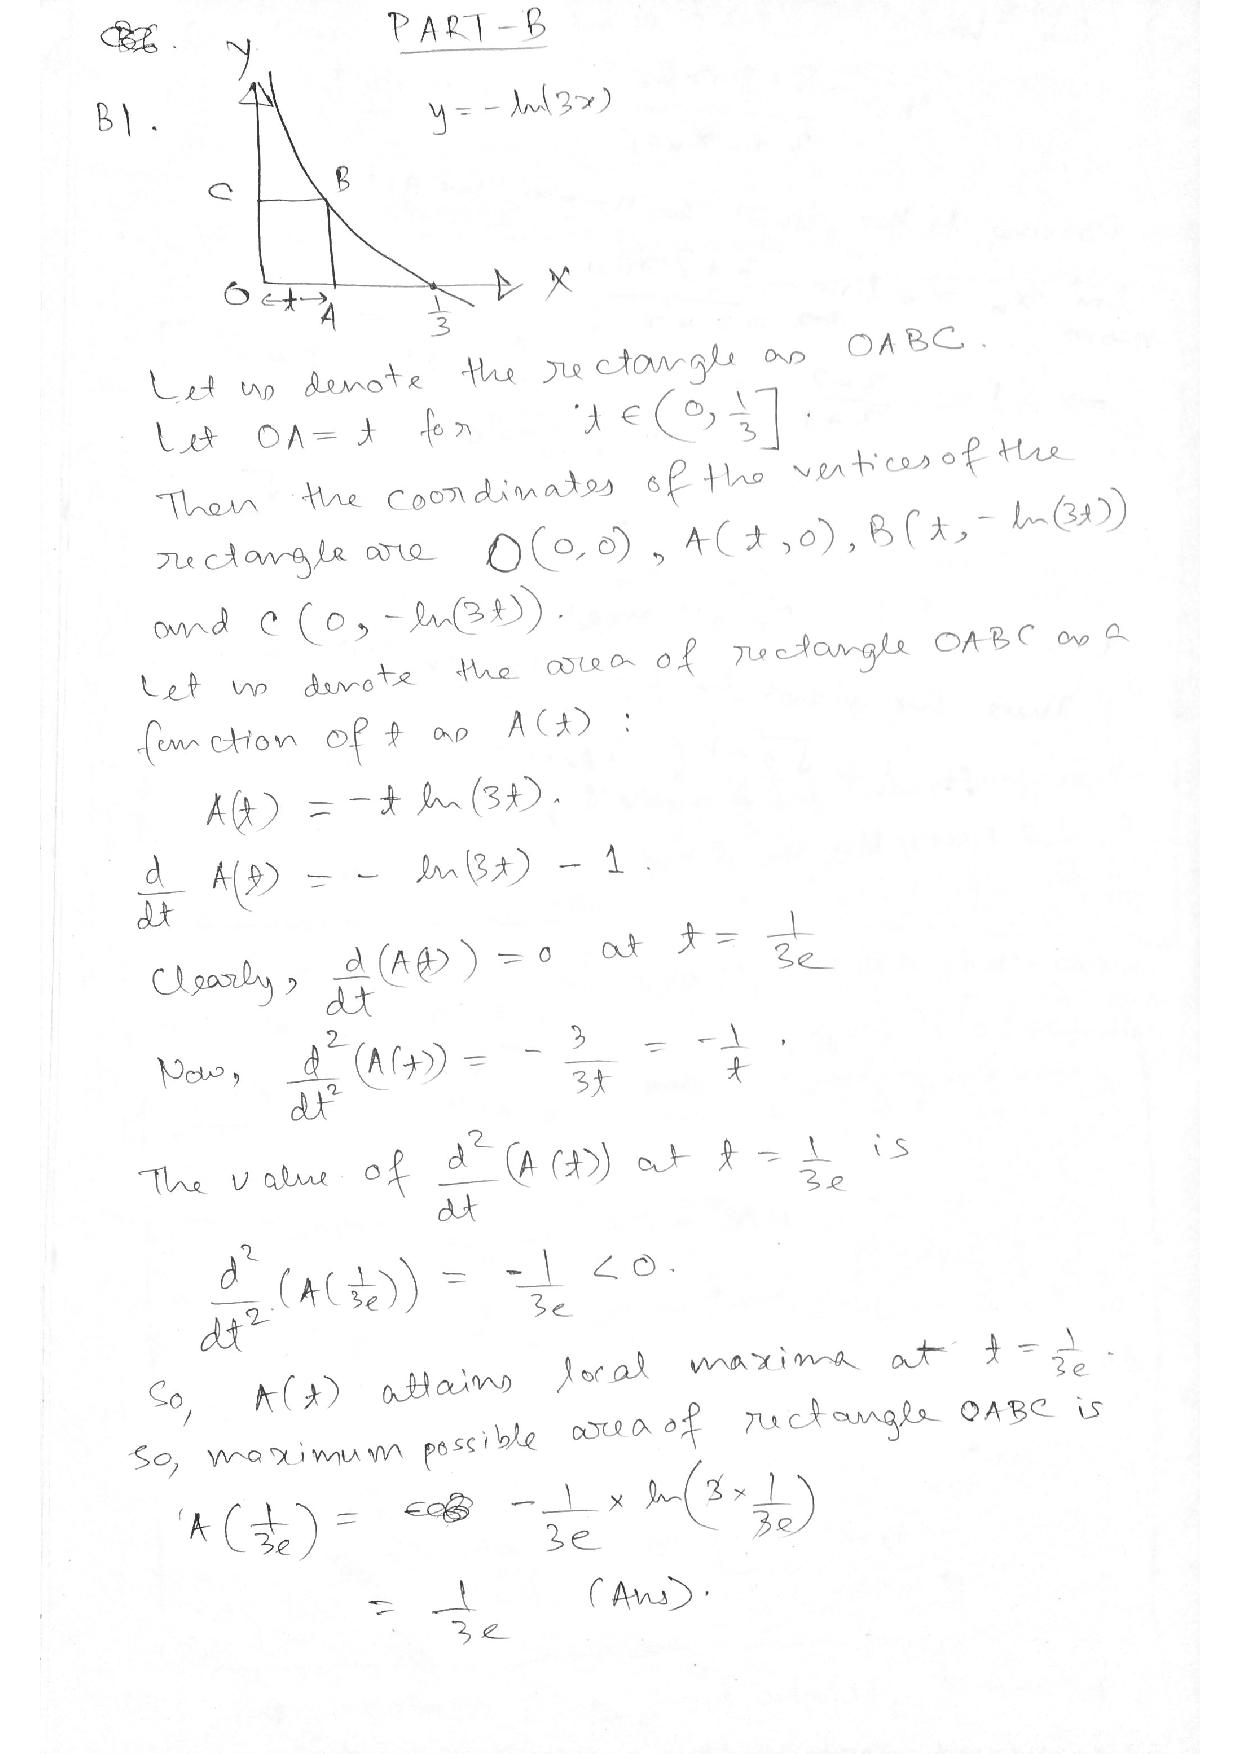 PART-B
B1.
y = - ln(3x)
Y
C
B
O
t
A
1/3
X
Let us denote the rectangle as OABC.
Let OA = t for t ∈ (0, 1/3].
Then the coordinates of the vertices of the
rectangle are O(0,0), A(t,0), B(t, -ln(3t))
and C(0, -ln(3t)).
Let us denote the area of rectangle OABC as a
function of t as A(t) :
A(t) = -t ln(3t).
d/dt A(t) = - ln(3t) - 1.
Clearly, d/dt (A(t)) = 0 at t = 1/3e
Now, d²/dt² (A(t)) = - 3/3t = -1/t.
The value of d²/dt (A(t)) at t = 1/3e is
d²/dt² (A(1/3e)) = -1/3e < 0.
So, A(t) attains local maxima at t = 1/3e.
So, maximum possible area of rectangle OABC is
A(1/3e) = -1/3e × ln(3 × 1/3e)
= 1/3e (Ans).